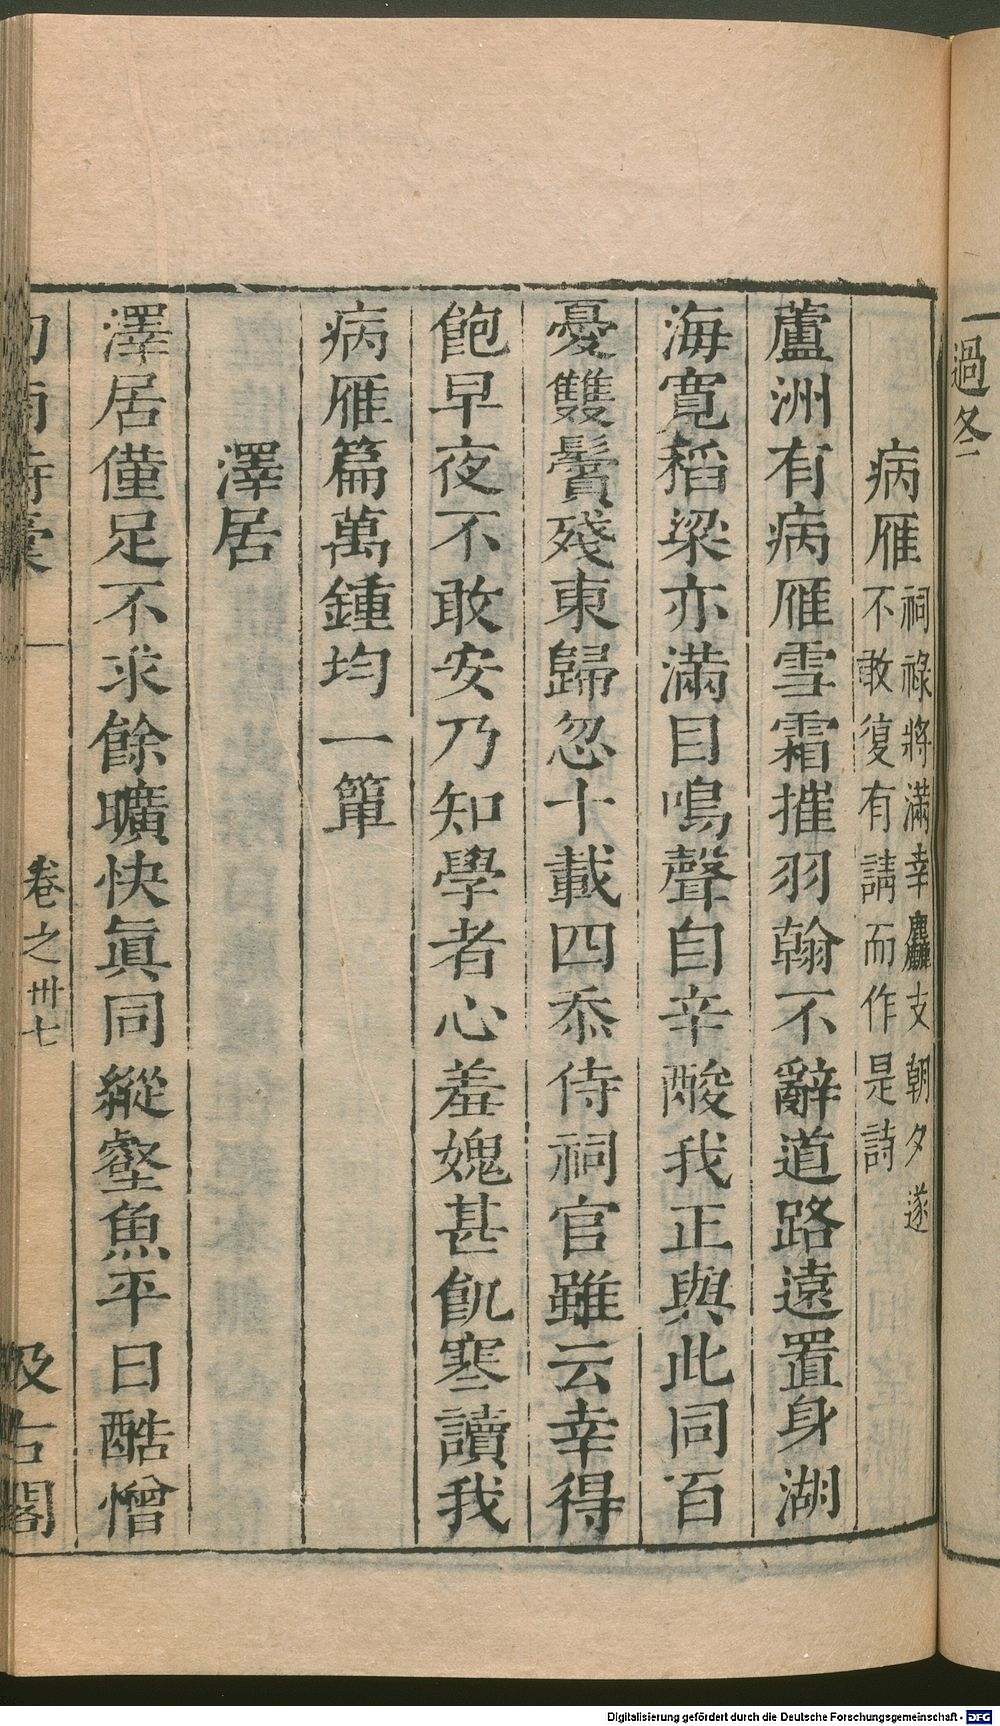 過冬
病雁祠祿將滿幸麤支朝夕遂
不敢復有請而作是詩
蘆洲有病雁雪霜摧羽翰不辭道路遠置身湖
海寬稻粱亦滿目鳴聲自辛酸我正與此同百
憂雙鬢殘東歸忽十載四忝侍祠官雖云幸得
飽早夜不敢安乃知學者心羞媿甚飢寒讀我
病雁篇萬鍾均一簞
澤居
澤居僅足不求餘曠快眞同縱壑魚平日酷憎
卷之卅七
汲古閣
Digitalisierung gefördert durch die Deutsche Forschungsgemeinschaft - DFG